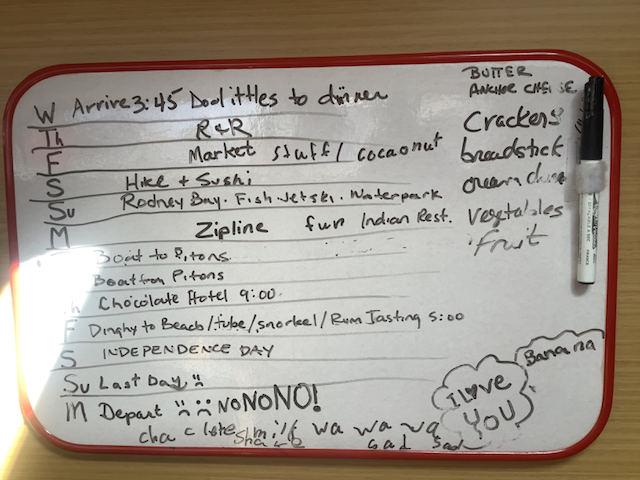 W Arrive 3:45 Doolittles to dinner
Th R+R
F Market stuff / cocaonut
S Hike + Sushi
Su Rodney Bay. Fish. Jetski. Waterpark
M Zipline fun Indian Rest.
Boat to Pitons
Boat from Pitons
h Chocolate Hotel 9:00
F Dinghy to Beach/tube/snorkel/Rum Tasting 5:00
S INDEPENDENCE DAY
Su Last Day
M Depart NONONO!
milk wa wa wa
sad
BUTTER
ANCHOR CHEESE
Crackers
breadstick
cream
vegetables
fruit
Banana
I Love
YOU